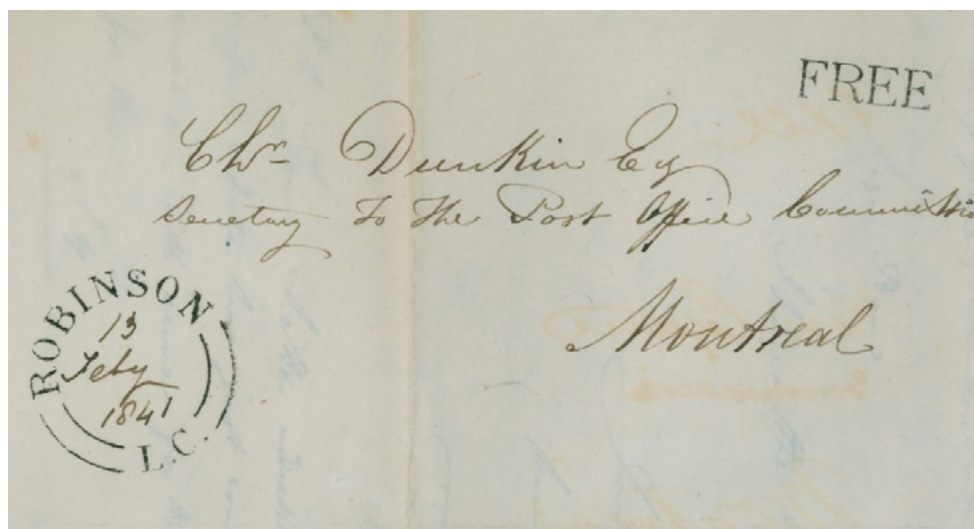 FREE
Chr Dunkin Esq
Secretary To The Post Office Commissio
Montreal
ROBINSON
13
Feby
1841
L.C.